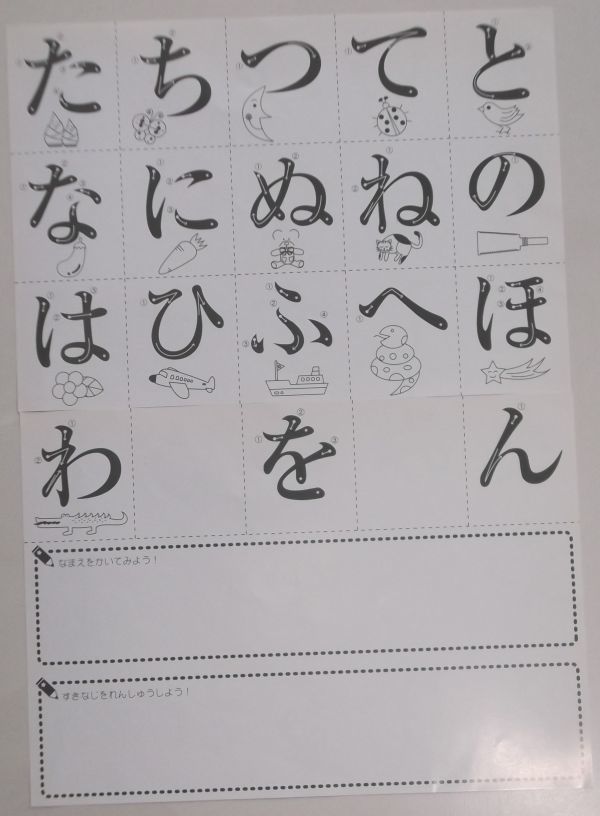 たちつてと
なにぬねの
はひふへほ
わをん
なまえをかいてみよう！
すきなじをれんしゅうしよう！